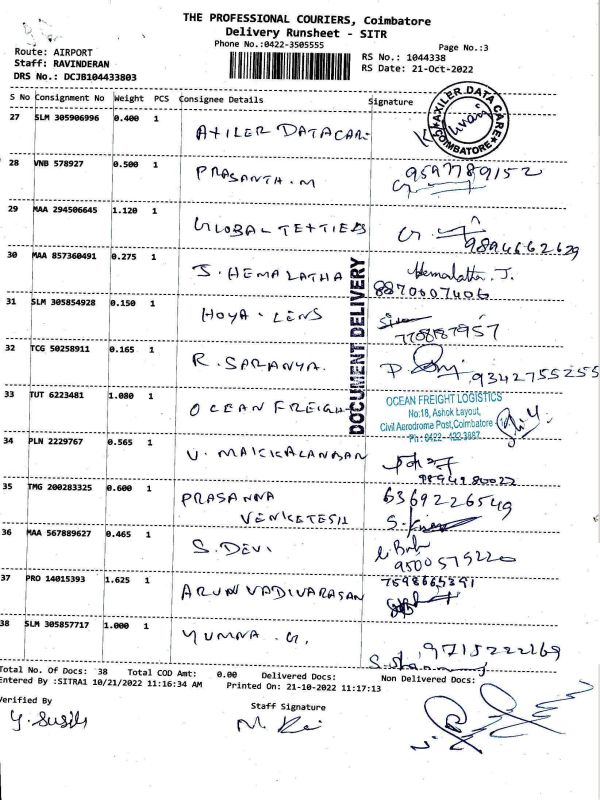 THE PROFESSIONAL COURIERS, Coimbatore
Delivery Runsheet - SITR
Phone No.:0422-3505555
Page No.:3
Route: AIRPORT
Staff: RAVINDERAN
DRS No.: DCJB104433803
RS No.: 1044338
RS Date: 21-Oct-2022
S No Consignment No Weight PCS Consignee Details Signature
AXILER DATA CARE
COIMBATORE
27 SLM 305906996 0.400 1 AXILER DATACARE
28 VNB 578927 0.500 1 PRASANTH.M 9597789152
29 MAA 294506645 1.120 1 GLOBAL TEXTILES
9894662629
30 MAA 857360491 0.275 1 J. HEMALATHA Hemalatha. J.
8870007406
DOCUMENT DELIVERY
31 SLM 305854928 0.150 1 HOYA - LENS
7708187957
32 TCG 50258911 0.165 1 R. SARANYA. 9342755255
33 TUT 6223481 1.080 1 OCEAN FREIGHT
OCEAN FREIGHT LOGISTICS
No:18, Ashok Layout,
Civil Aerodroma Post, Coimbatore -
Ph: 0422 -
34 PLN 2229767 0.565 1 V. MAKKALANBAN
35 TMG 200283325 0.600 1 PRASANNA
VENKETESH
6369226549
36 MAA 567889627 0.465 1 S. DEVI
9500575220
37 PRO 14015393 1.625 1 ARUN VADIVARASAN
7598665291
38 SLM 305857717 1.000 1 YUMNA . G.
9715222169
Total No. Of Docs: 38 Total COD Amt: 0.00 Delivered Docs: Non Delivered Docs:
Entered By :SITRA1 10/21/2022 11:16:34 AM Printed On: 21-10-2022 11:17:13
Verified By
Staff Signature